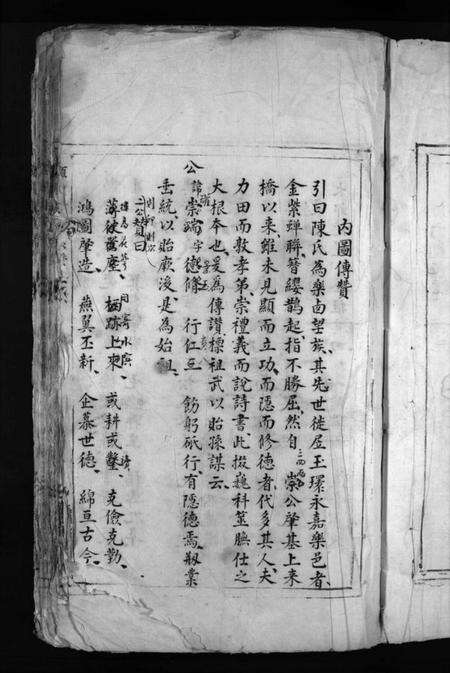 內圖傳贊
引曰陳氏為樂邑望族其先世徒居王環永嘉樂邑者
金紫蟬聯簪纓鵲起指不勝屈然自崇公肇基上來
橋以來雖未見顯而立功而隱而修德者代多其人夫
力田而敦孝弟崇禮義而說詩書此掇巍科筮膴仕之
大根本也爰為傳讚標祖武以貽孫謀云
公諱崇端字德條行仁三飭躬砥行有隱德焉創業
垂統以貽厥後是為始祖
公贊曰
薄彼舊廛栖跡上來或耕或鑿克儉克勤
鴻圖肇造燕翼丕新企慕世德綿亘古今